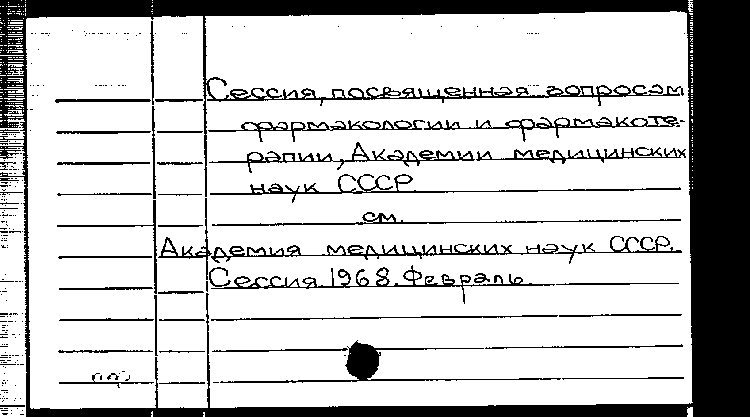 Сессия, посвященная вопросам
фармакологии и фармакоте-
рапии, Академии медицинских
наук СССР
см.
Академия медицинских наук СССР.
Сессия. 1968. Февраль.